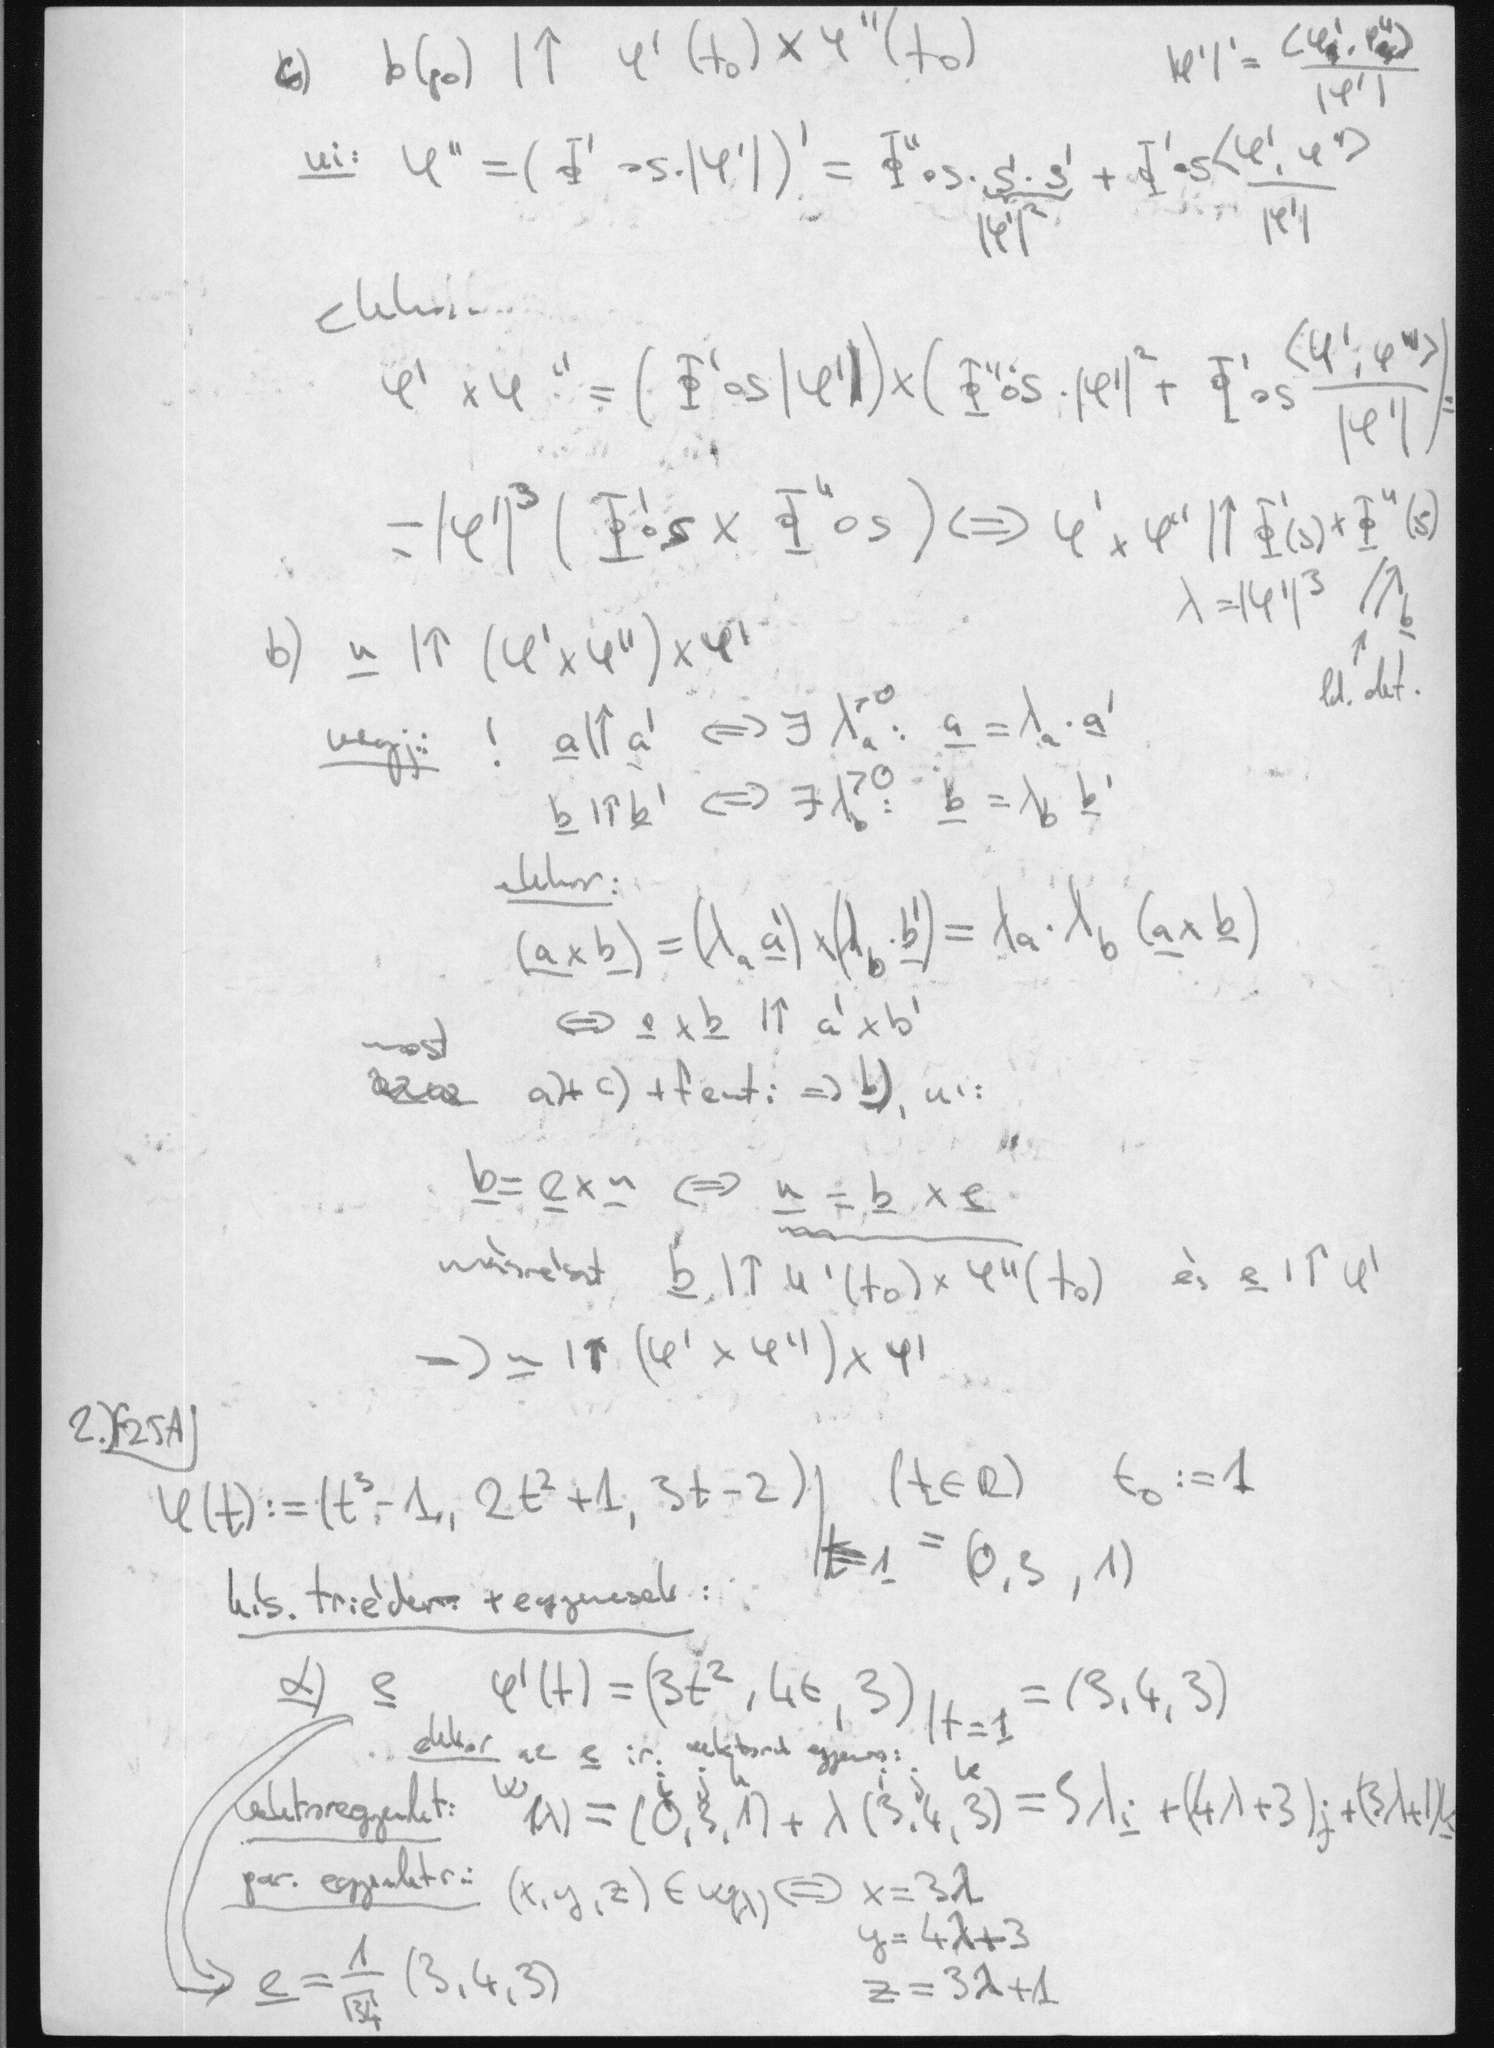 c) b(p₀) |↑ φ'(t₀) × φ''(t₀) |φ'|' = ⟨φ', φ''⟩ / |φ'|
ui: φ'' = (Φ'∘s·|φ'|)' = Φ''∘s · s'·s' + Φ'∘s ⟨φ', φ''⟩ / |φ'|
|φ'|²
φ' × φ'' = (Φ'∘s |φ'|) × (Φ''∘s · |φ'|² + Φ'∘s ⟨φ', φ''⟩ / |φ'|) =
= |φ'|³ (Φ'∘s × Φ''∘s) ⟺ φ' × φ'' |↑ Φ'(s) × Φ''(s)
λ = |φ'|³ b
b) n |↑ (φ' × φ'') × φ'
megj: ! a |↑ a' ⟺ ∃ λₐ>0: a = λₐ · a'
b |↑ b' ⟺ ∃ λ_b>0: b = λ_b b'
ekkor:
(a × b) = (λₐ a') × (λ_b · b') = λₐ · λ_b (a × b)
⟺ a × b |↑ a' × b'
most a) + c) + fent: ⇒ b), ui:
b = e × n ⟺ n = b × e
másrészt b |↑ φ'(t₀) × φ''(t₀) és e |↑ φ'
⇒ n |↑ (φ' × φ'') × φ'
2.) F25A
φ(t) := (t³-1, 2t²+1, 3t-2)| (t ∈ R) t₀ := 1
t=1 = (0, 3, 1)
kís. triéder + egyenesek:
α) e φ'(t) = (3t², 4t, 3)|t=1 = (3, 4, 3)
ekkor az e ir. vektorú egyenes:
vektoregyenlet: w(λ) = (0, 3, 1) + λ (3, 4, 3) = 3λi + (4λ+3)j + (3λ+1)k
par. egyenletr.: (x, y, z) ∈ w(λ) ⟺ x = 3λ
y = 4λ+3
e = 1/√34 (3, 4, 3) z = 3λ+1